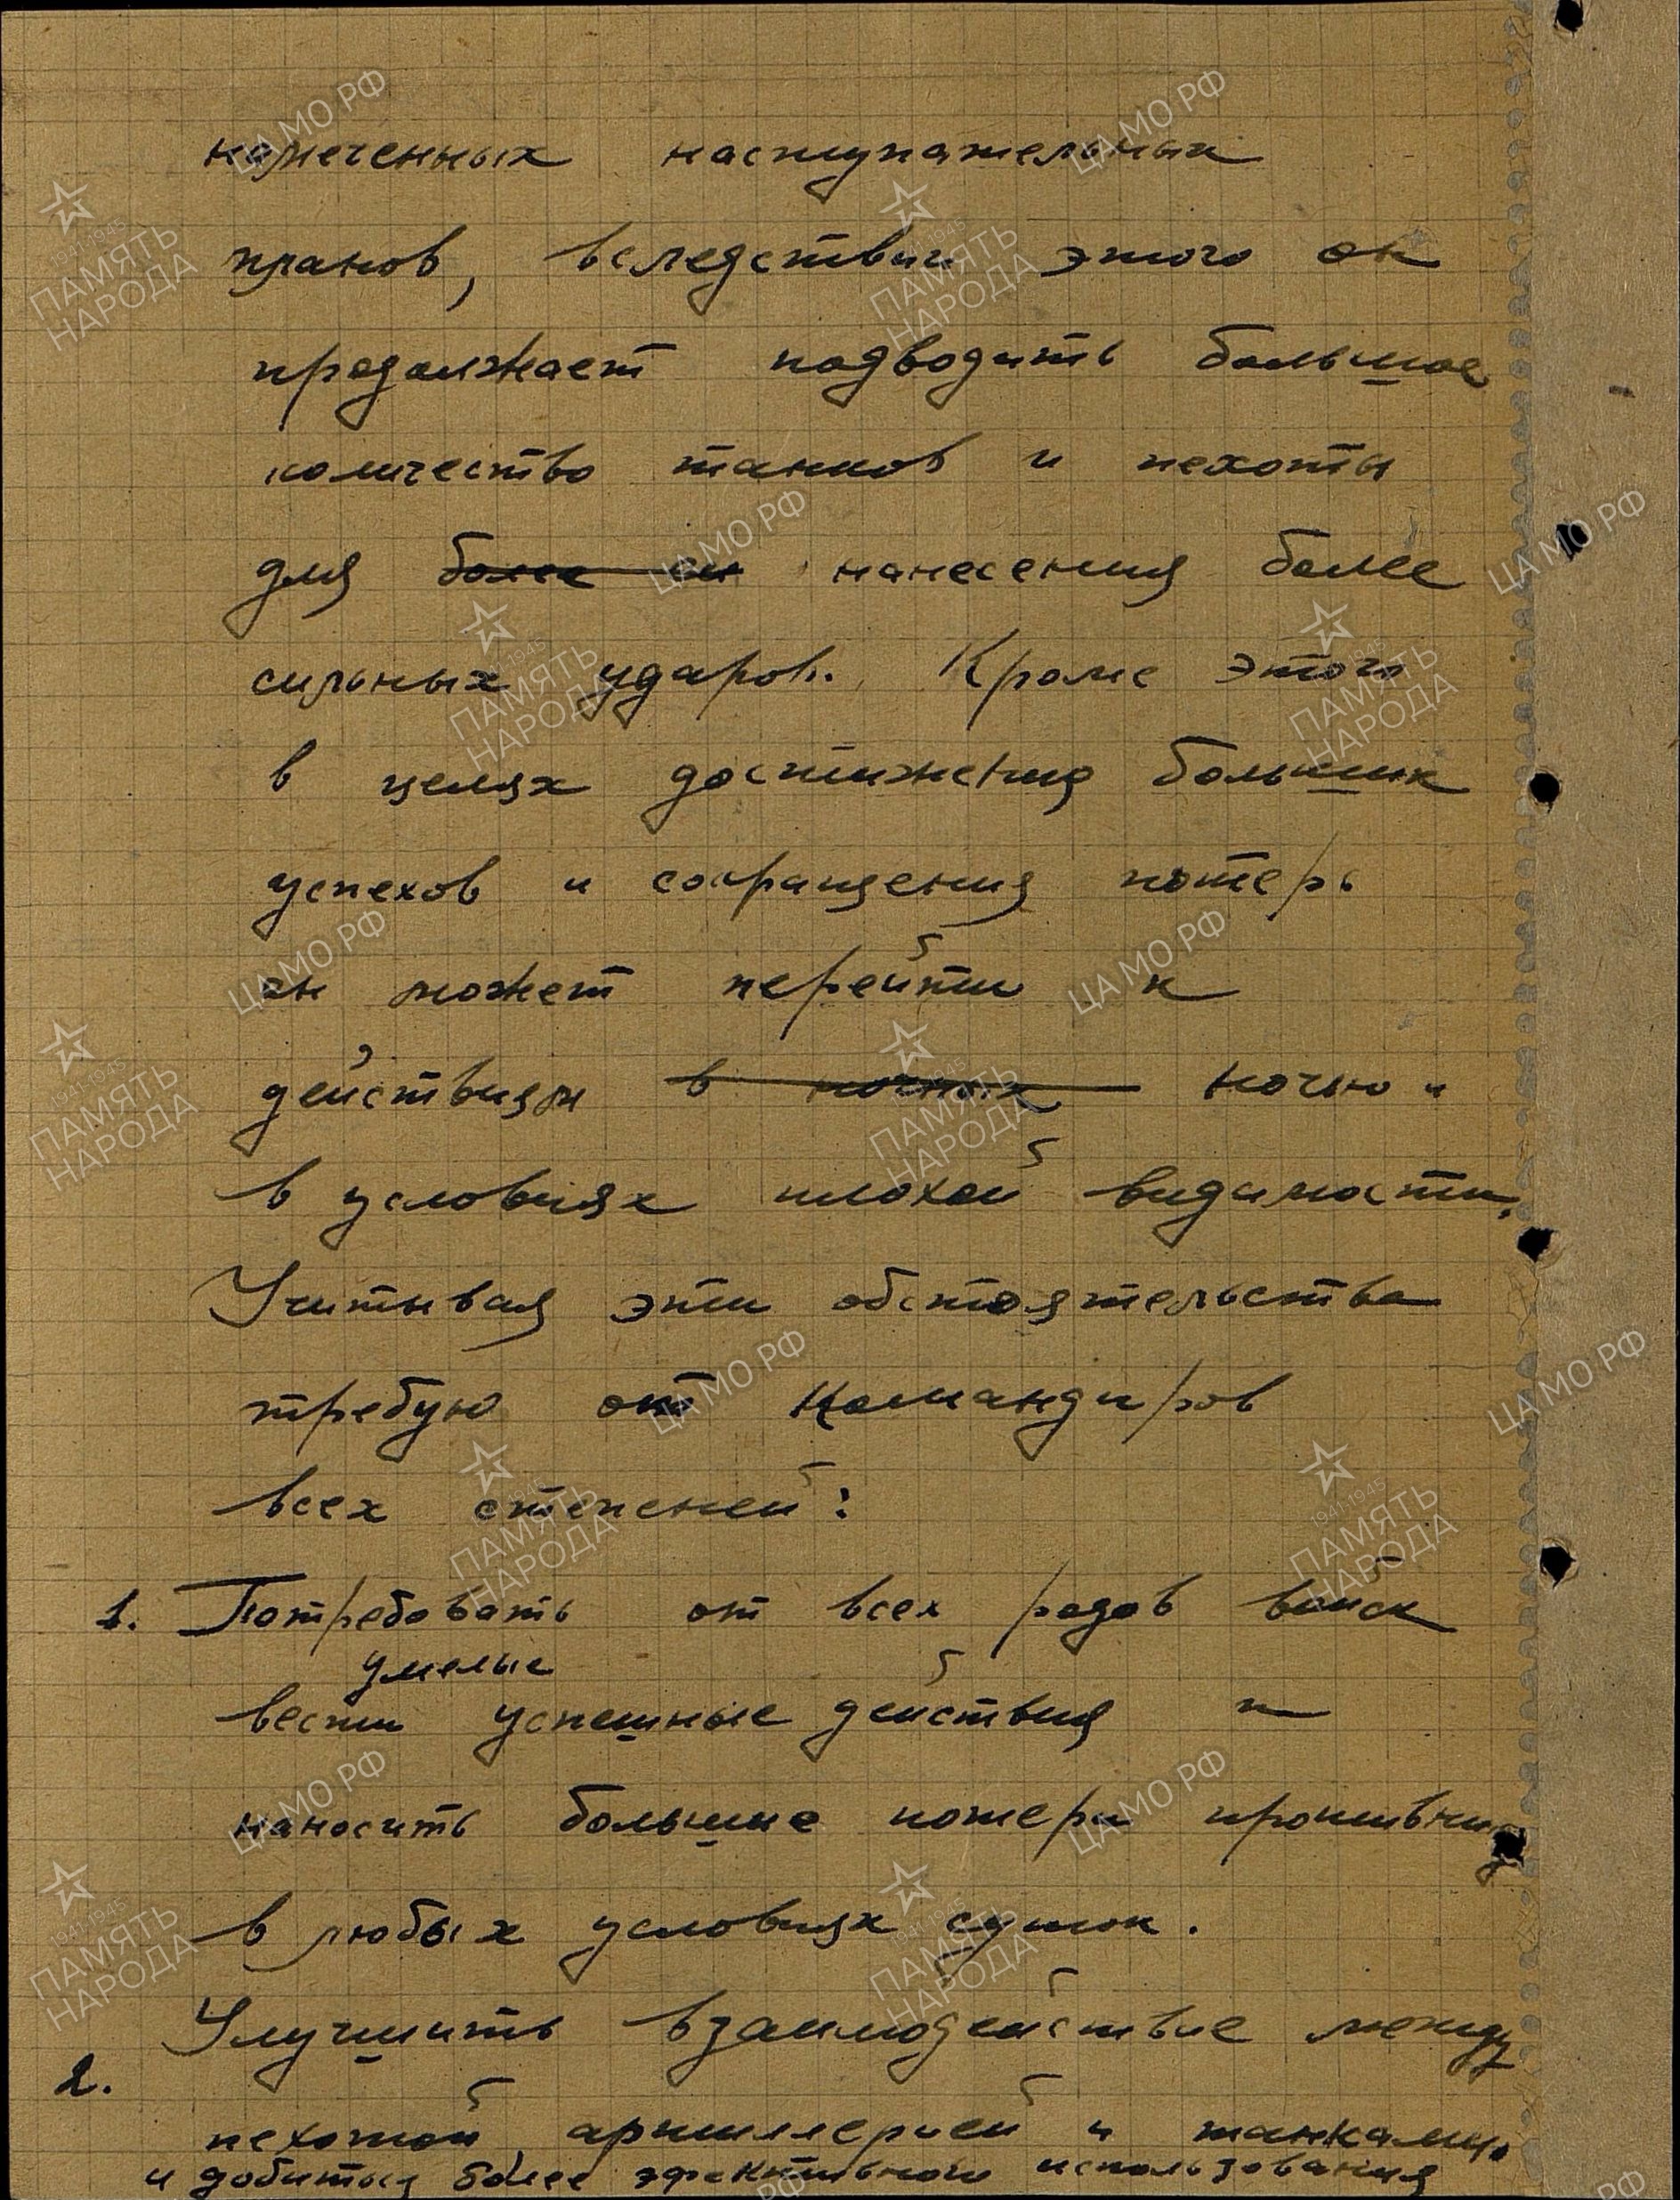 намеченных наступательных
планов, вследствии этого он
продолжает подводить большое
количество танков и пехоты
для ~~более си~~ нанесения более
сильных ударов. Кроме этого
в целях достижения больших
успехов и сокращения потерь
он может перейти к
действиям ~~в ночных~~ ночью и
в условиях плохой видимости.
Учитывая эти обстоятельства
требую от командиров
всех степеней:
1. Потребовать от всех родов войск
умелые
вести успешные действия и
наносить большие потери противнику
в любых условиях суток.
Улучшить взаимодействие между
2.
пехотой, артиллерией и танками,
и добиться более эфективного использования
ЦА МО РФ
1941-1945
ПАМЯТЬ
НАРОДА